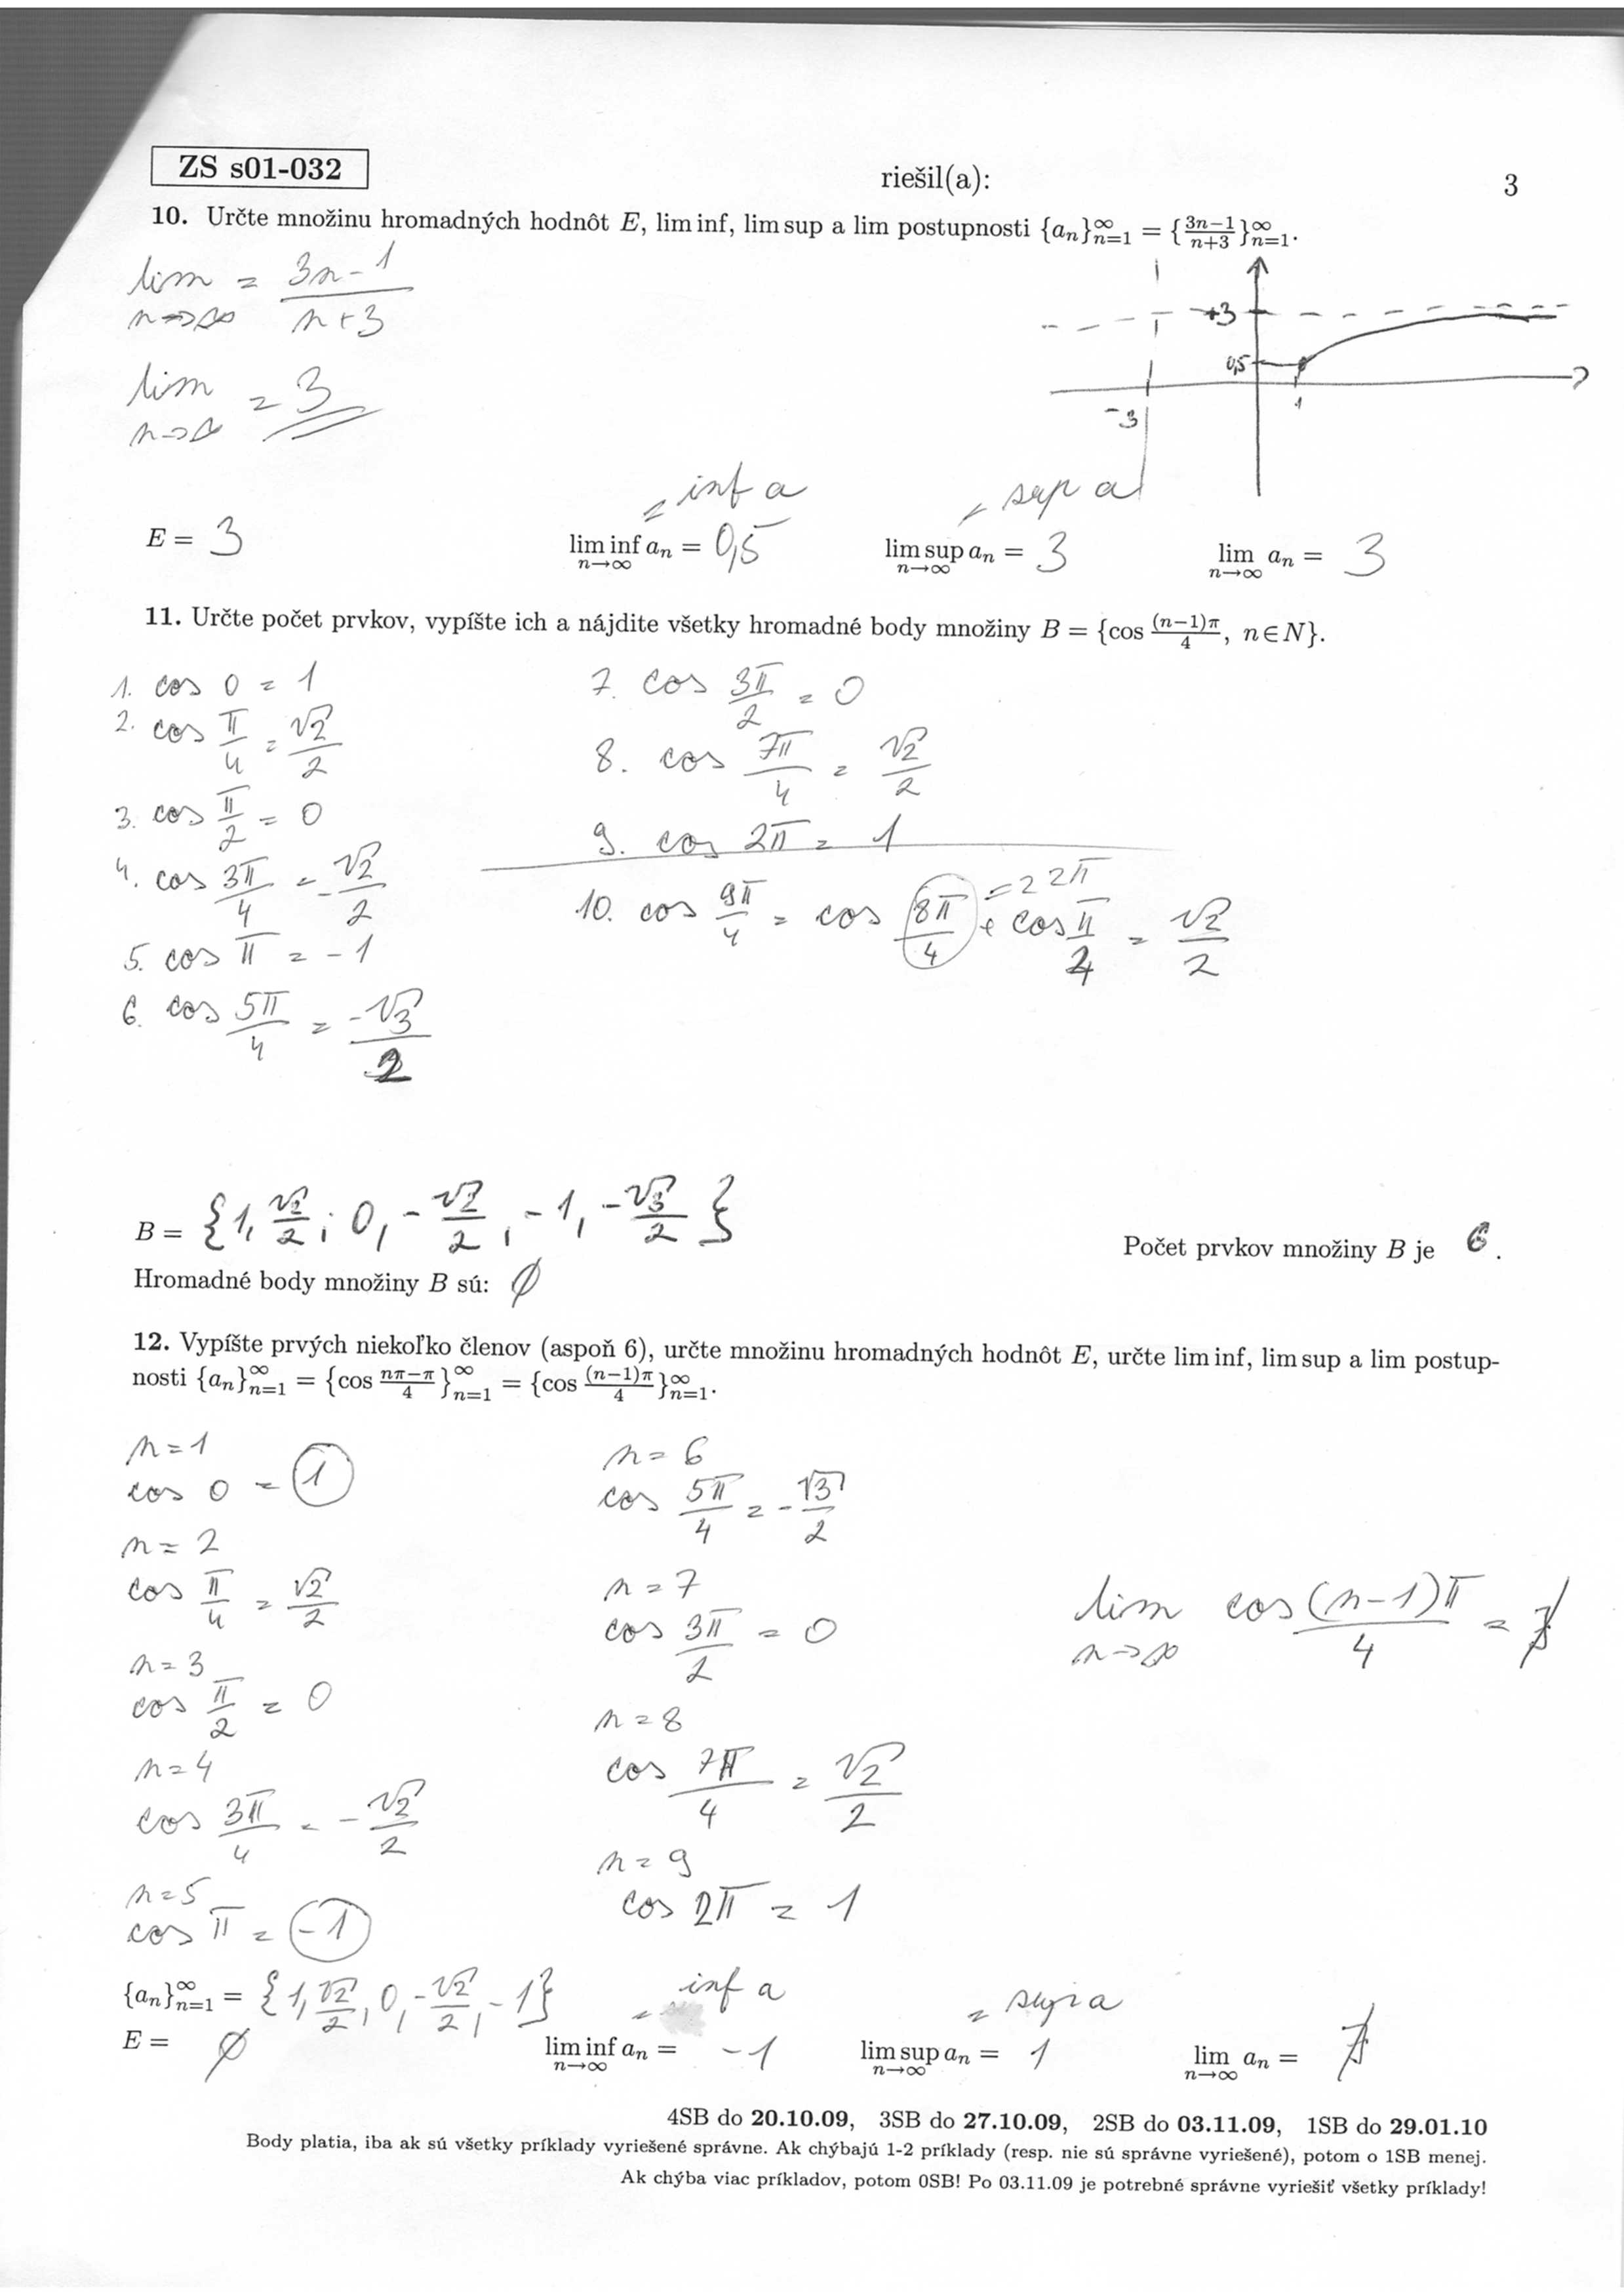 ZS s01-032 riešil(a): 3
10. Určte množinu hromadných hodnôt E, lim inf, lim sup a lim postupnosti {aₙ}∞ₙ₌₁ = {(3n−1)/(n+3)}∞ₙ₌₁.
lim n→∞ = (3n−1)/(n+3)
+3
0,5
lim n→∞ = 3
-3
1
= inf a = sup a
E = 3 lim inf n→∞ aₙ = 0,5 lim sup n→∞ aₙ = 3 lim n→∞ aₙ = 3
11. Určte počet prvkov, vypíšte ich a nájdite všetky hromadné body množiny B = {cos (n−1)π/4, n∈N}.
1. cos 0 = 1
2. cos π/4 = √2/2
3. cos π/2 = 0
4. cos 3π/4 = -√2/2
5. cos π = -1
6. cos 5π/4 = -√3/2
7. cos 3π/2 = 0
8. cos 7π/4 = √2/2
9. cos 2π = 1
10. cos 9π/4 = cos 8π/4 + cos π/4 = √2/2
= 2 2π
B = {1, √2/2; 0, -√2/2, -1, -√3/2}
Počet prvkov množiny B je 6.
Hromadné body množiny B sú: ∅
12. Vypíšte prvých niekoľko členov (aspoň 6), určte množinu hromadných hodnôt E, určte lim inf, lim sup a lim postup-
nosti {aₙ}∞ₙ₌₁ = {cos (nπ−π)/4}∞ₙ₌₁ = {cos (n−1)π/4}∞ₙ₌₁.
n=1
cos 0 = 1
n=2
cos π/4 = √2/2
n=3
cos π/2 = 0
n=4
cos 3π/4 = -√2/2
n=5
cos π = -1
n=6
cos 5π/4 = -√3/2
n=7
cos 3π/2 = 0
n=8
cos 7π/4 = √2/2
n=9
cos 2π = 1
lim n→∞ cos(n−1)π/4 = ∄
= inf a = supra
{aₙ}∞ₙ₌₁ = {1, √2/2, 0, -√2/2, -1}
E = ∅ lim inf n→∞ aₙ = -1 lim sup n→∞ aₙ = 1 lim n→∞ aₙ = ∄
4SB do 20.10.09, 3SB do 27.10.09, 2SB do 03.11.09, 1SB do 29.01.10
Body platia, iba ak sú všetky príklady vyriešené správne. Ak chýbajú 1-2 príklady (resp. nie sú správne vyriešené), potom o 1SB menej.
Ak chýba viac príkladov, potom 0SB! Po 03.11.09 je potrebné správne vyriešiť všetky príklady!